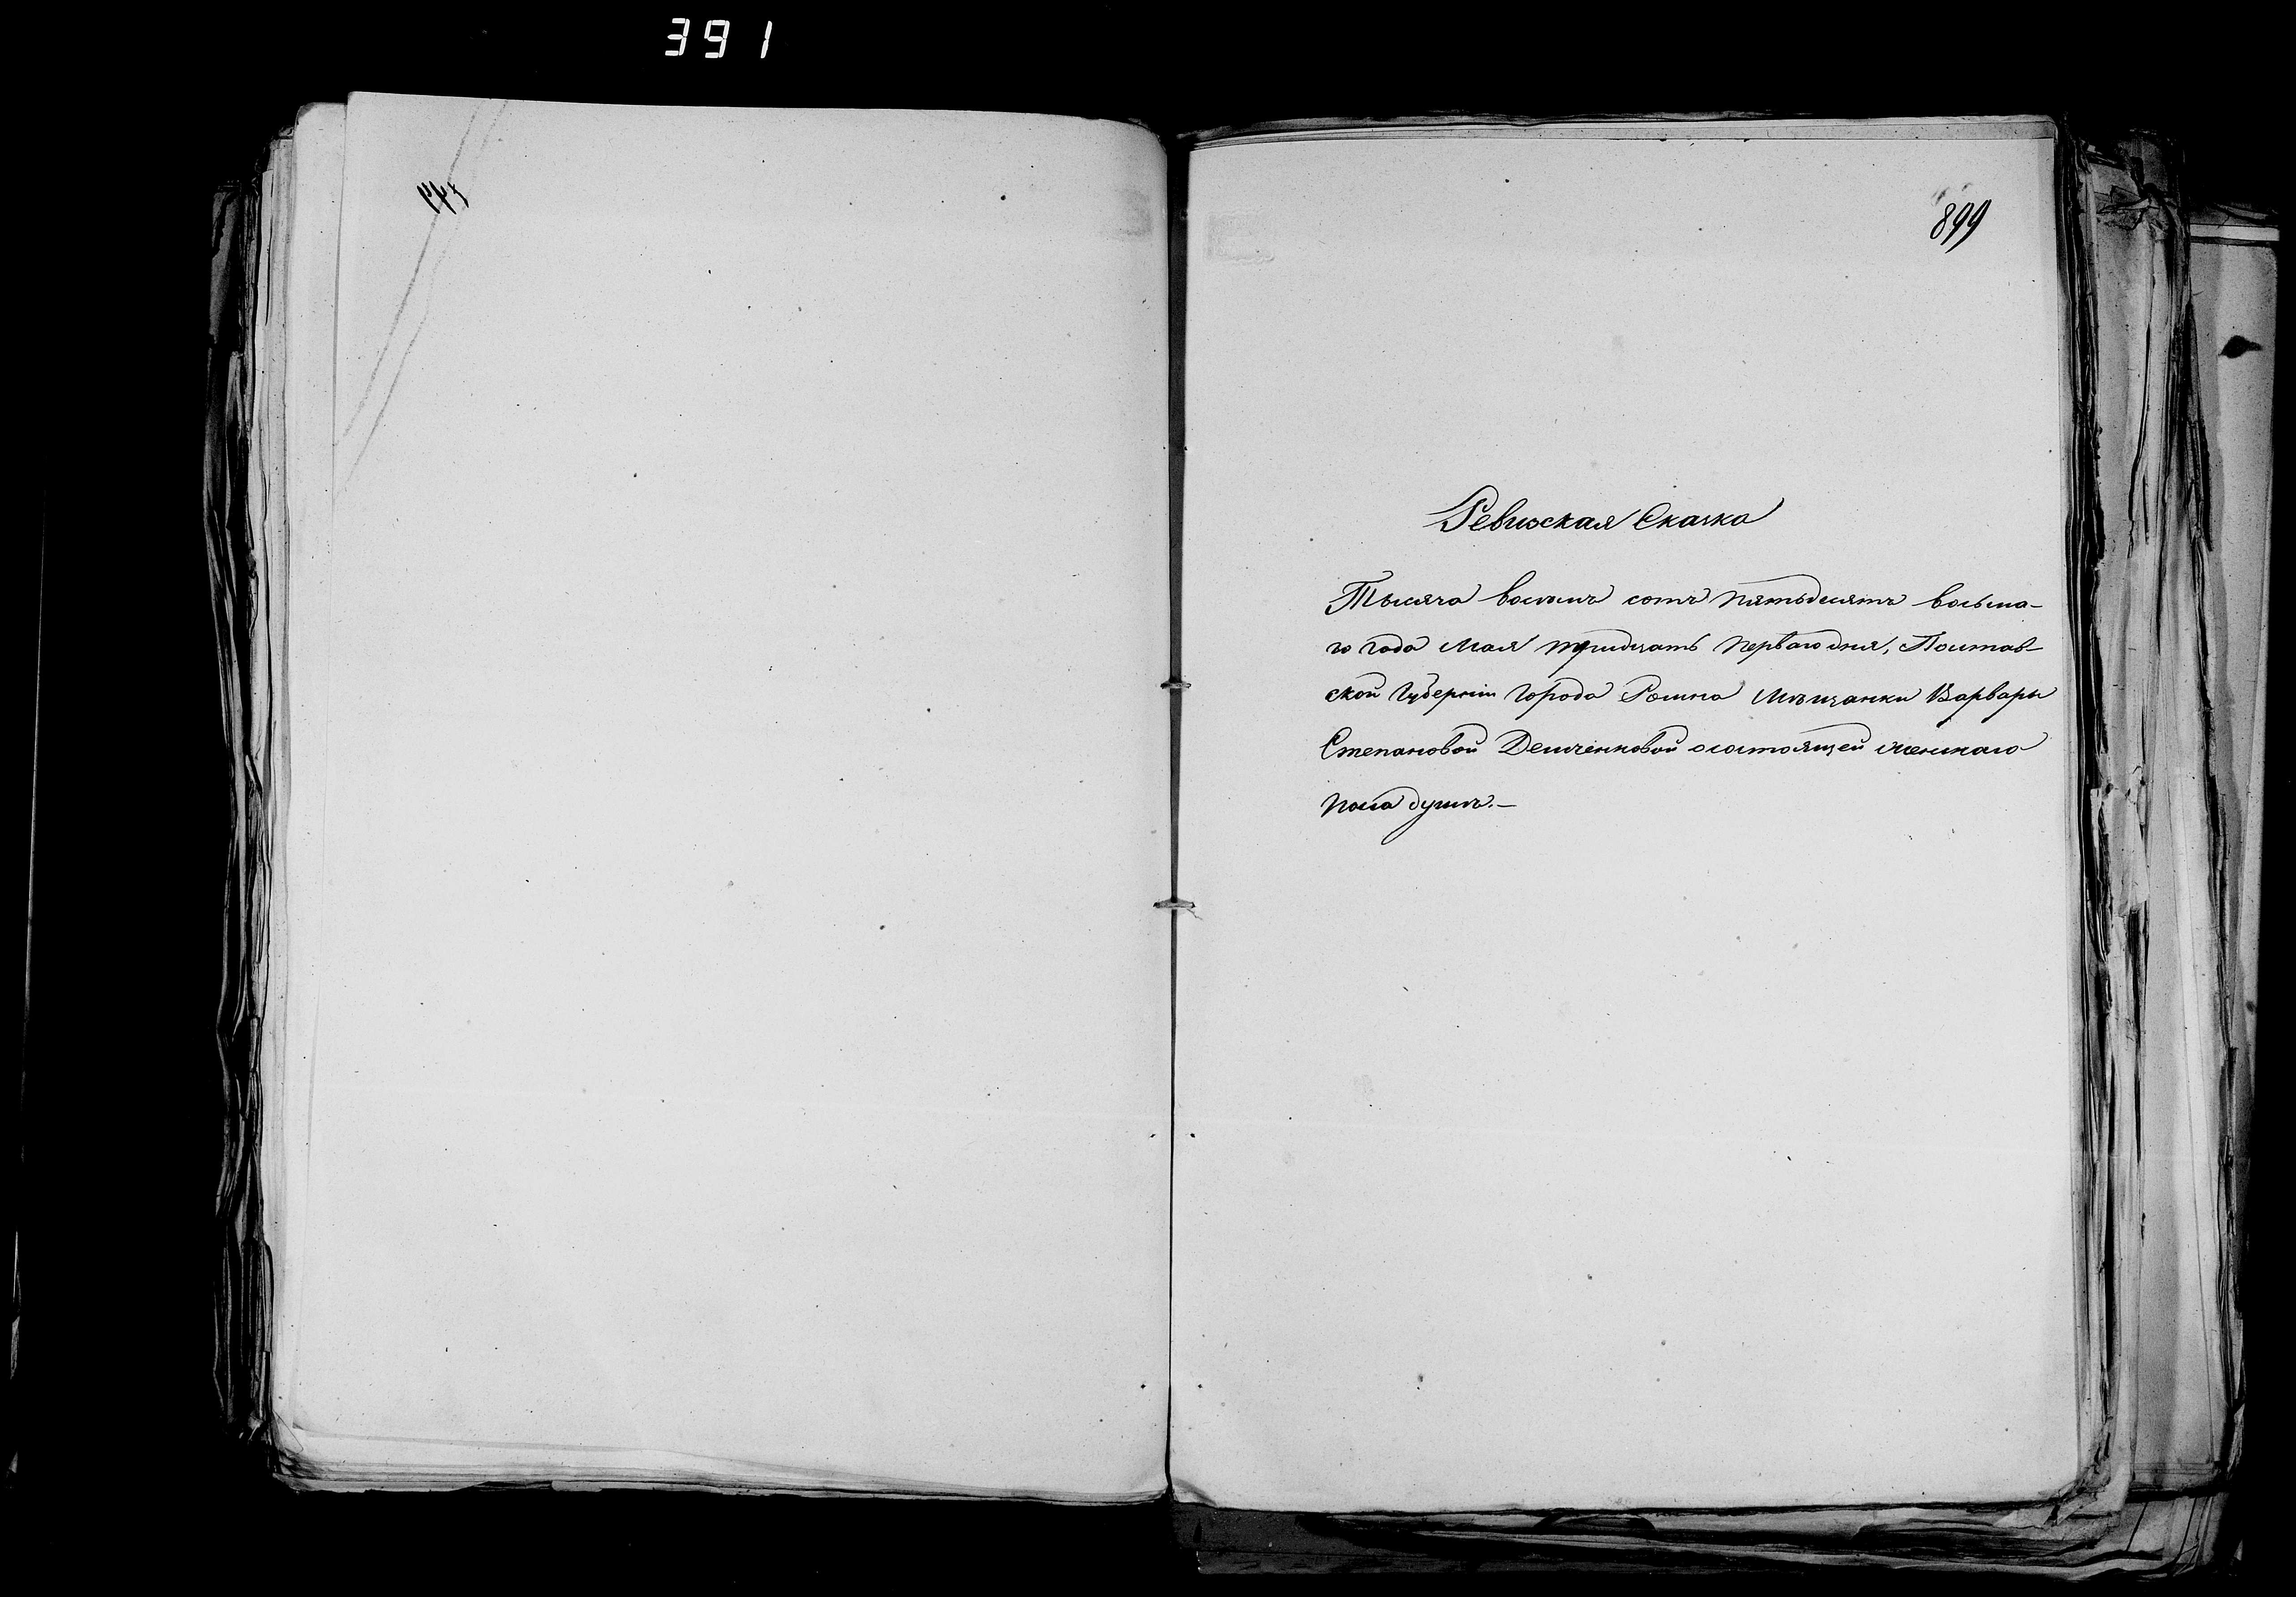 391
899
Ревизская Сказка
Тысяча восемь сотъ пятьдесятъ восьма-
го года Мая тридцать перваго дня, Полтав-
ской Губерніи Города Ромна Мѣщанки Варвары
Степановой Демченковой о состоящей женскаго
пола душѣ.—